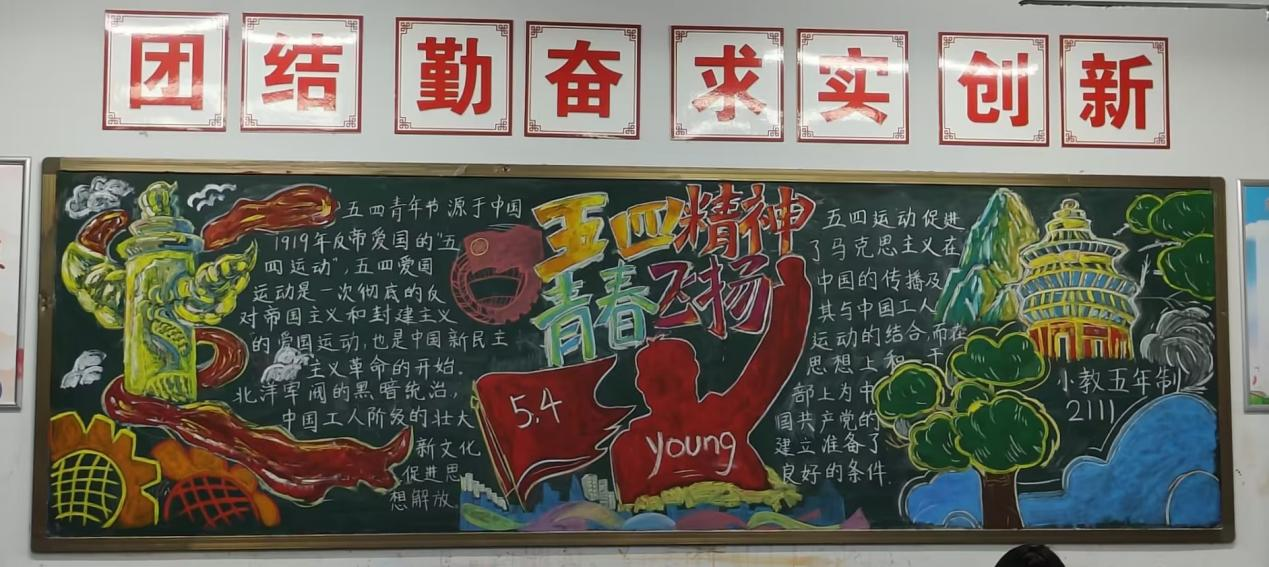 团结 勤奋 求实 创新
五四精神
青春飞扬
五四青年节源于中国
1919年反帝爱国的“五
四运动”，五四爱国
运动是一次彻底的反
对帝国主义和封建主义
的爱国运动，也是中国新民主
主义革命的开始.
北洋军阀的黑暗统治，
中国工人阶级的壮大
新文化
促进思
想解放。
5.4
young
五四运动促进
了马克思主义在
中国的传播及
其与中国工人
运动的结合，而在
思想上和 干
部上为中
国共产党的
建立准备了
良好的条件.
小教五年制
2111